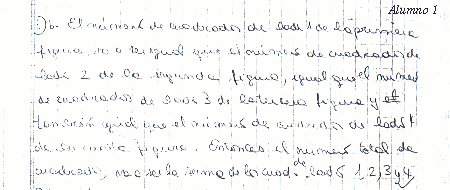 Alumno 1
1) b. El número de cuadrados de lado 1 de la primera
figura, va a ser igual que el número de cuadrados de
lado 2 de la segunda figura, igual que el número
de cuadrados de lado 3 de la tercera figura y el
también igual que el número de cuadrados de lado 4
de la cuarta figura. Entonces el número total de
cuadrados, va a ser la suma de los cuad. de lado 1, 2, 3 y 4